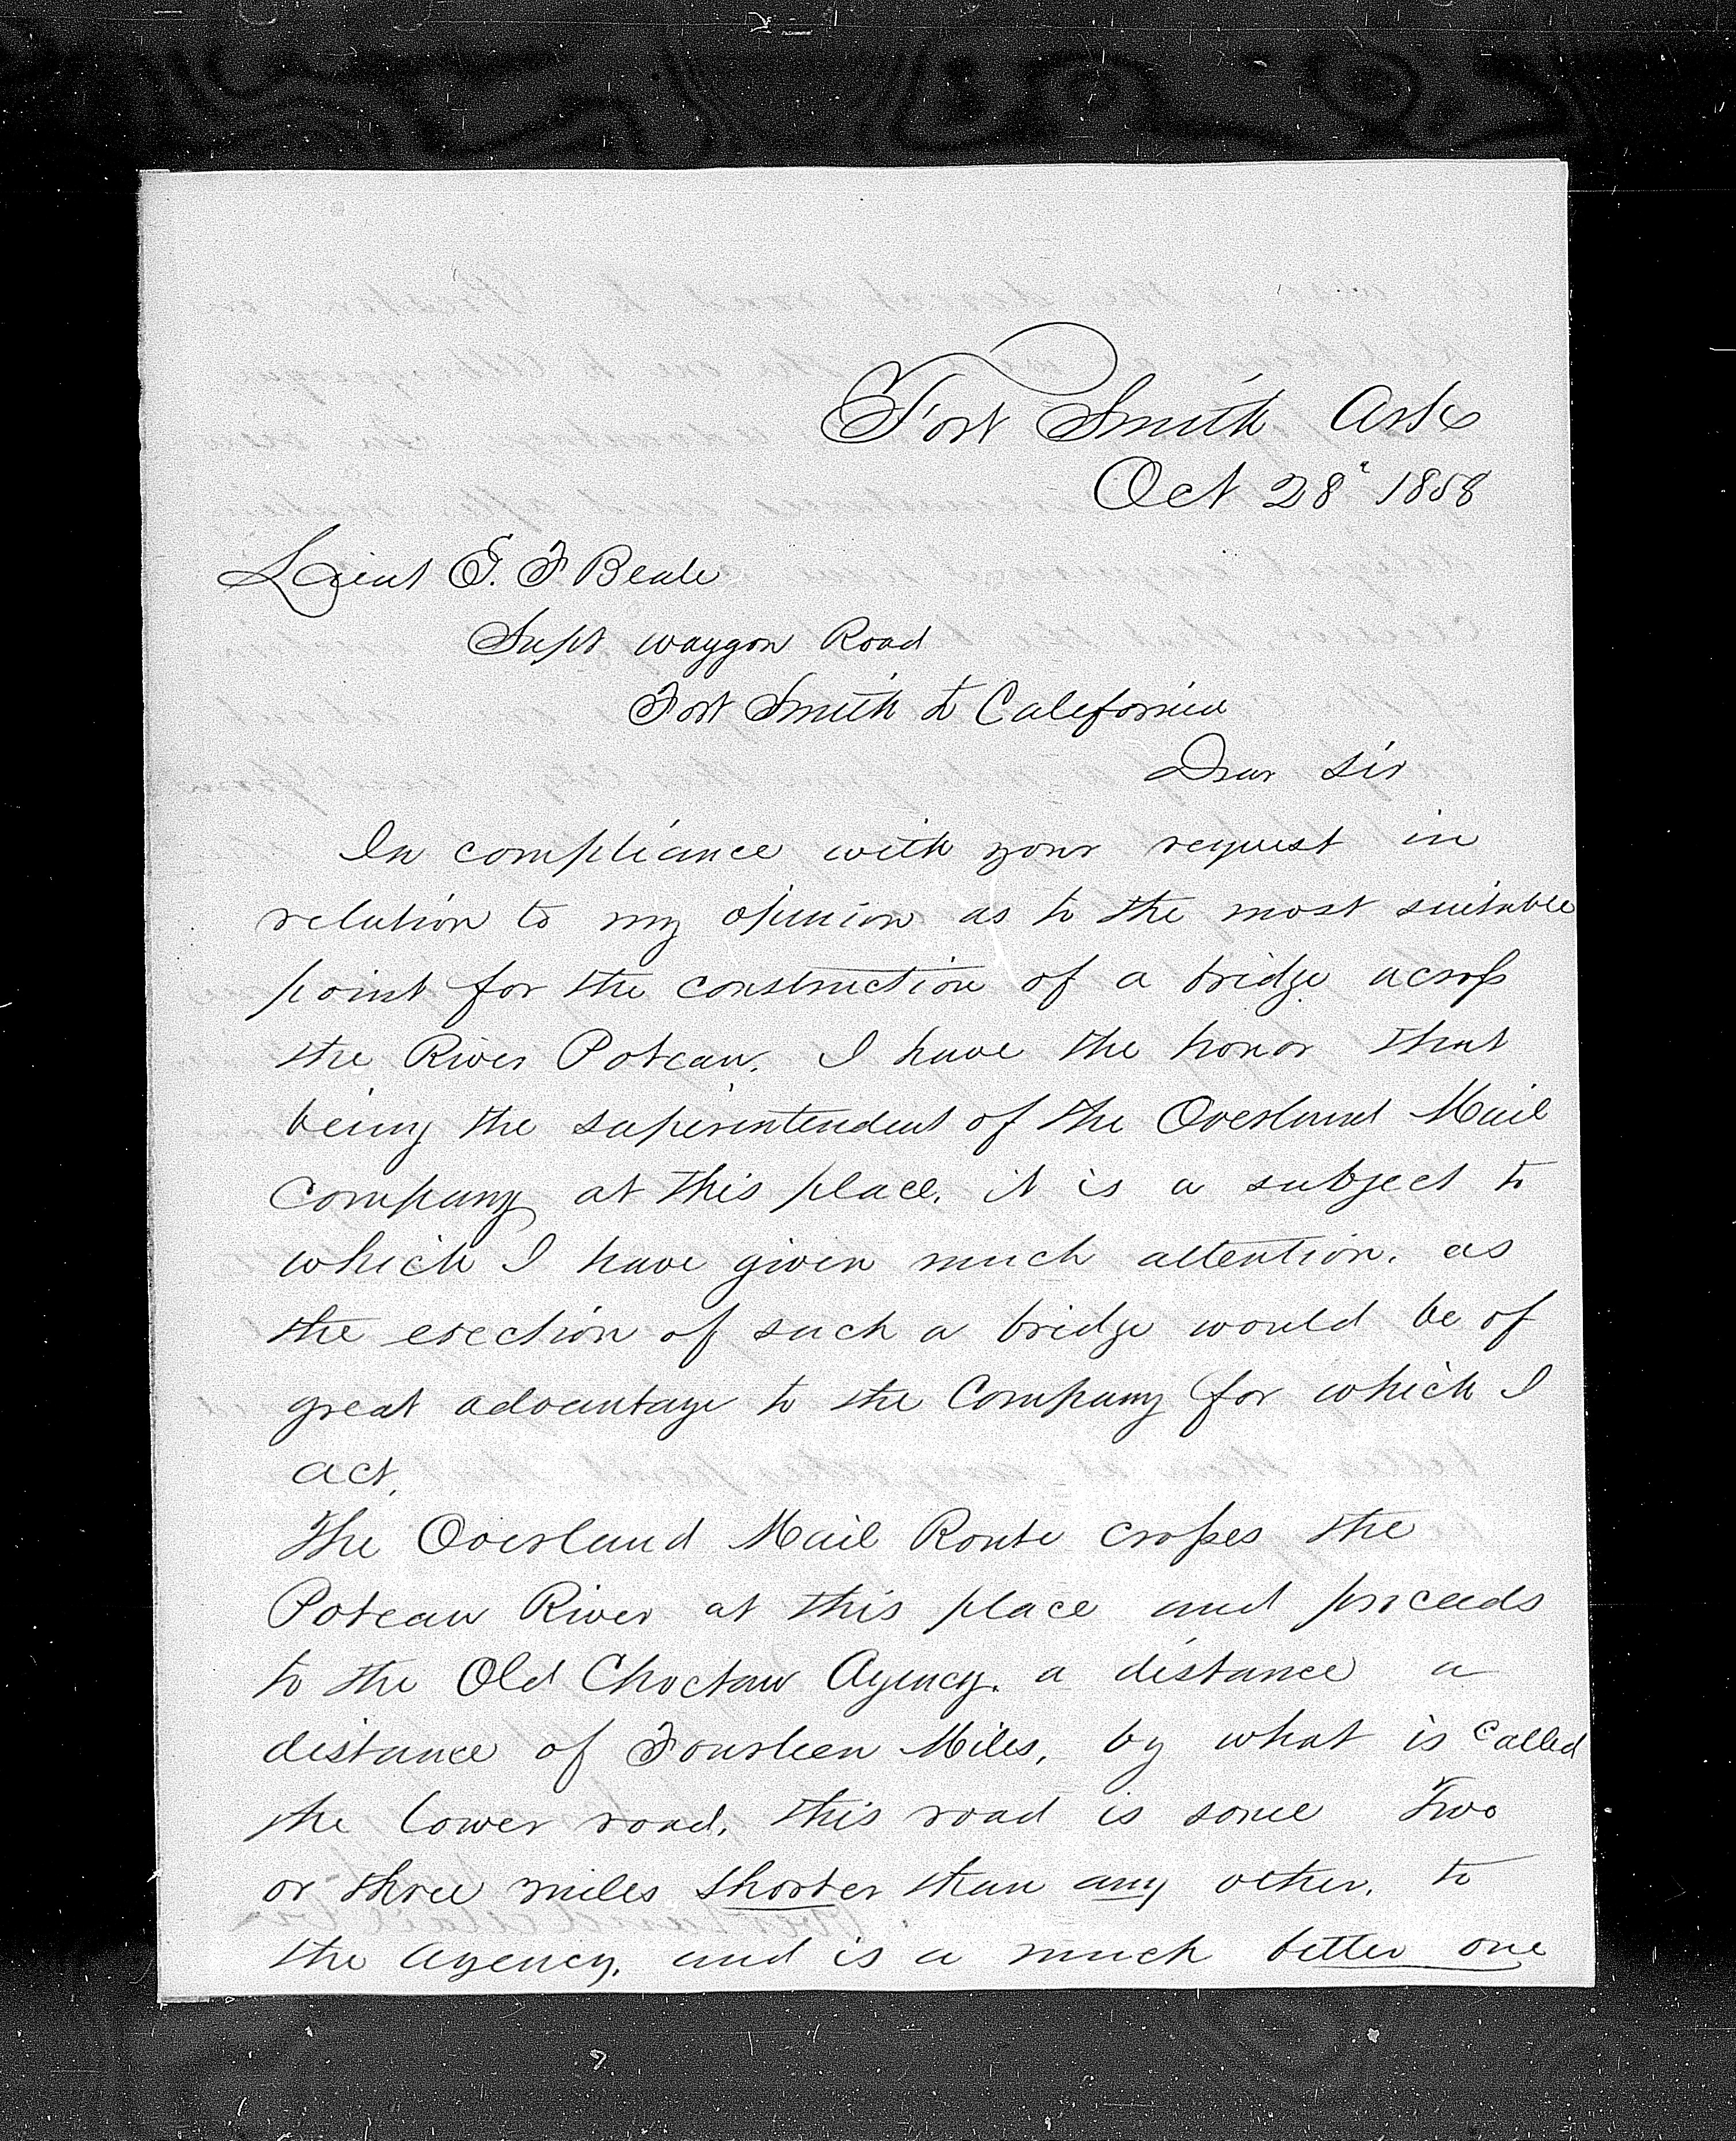 Fort Smith Arks
Oct 28" 1858
Lieut E. F Beale
Supt waggon Road
Fort Smith to California
Dear Sir
In compliance with your request in
relation to my opinion as to the most suitable
point for the construction of a bridge across
the River Poteau. I have the honor that
being the superintendent of the Overland Mail
Company at this place. it is a subject to
which I have given much attention. as
the erection of such a bridge would be of
great advantage to the Company for which I
act.
The Overland Mail Route crosses the
Poteau River at this place and proceeds
to the Old Choctaw Agency. a distance a
distance of Fourteen Miles, by what is Called
the lower road, this road is some Two
or three miles shorter than any other. to
the agency. and is a much better one